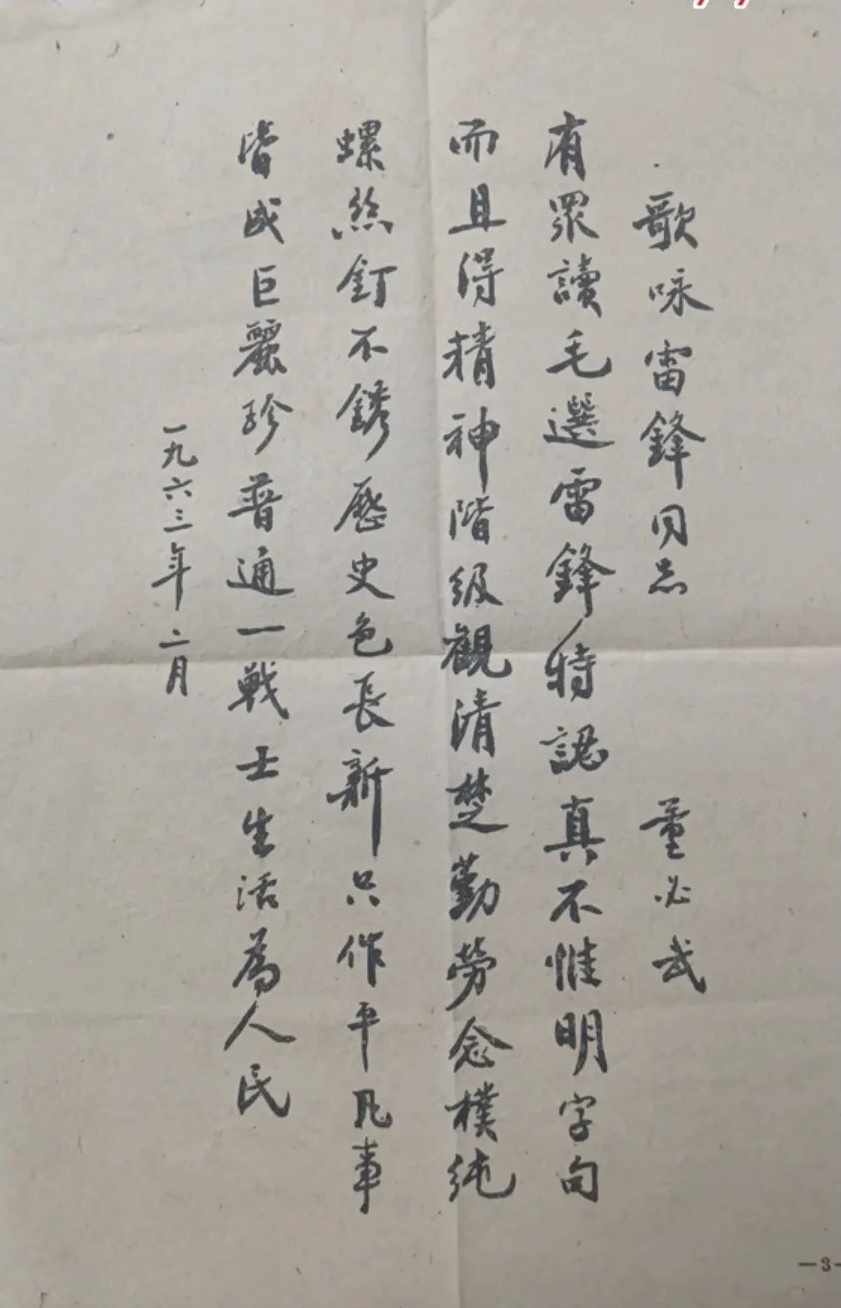 歌咏雷鋒同志　董必武
有眾讀毛選雷鋒特認真不惟明字句
而且得精神階級觀清楚勤勞念樸纯
螺丝釘不鏽歷史色長新只作平凡事
皆成巨麗珍普通一戰士生活為人民
一九六三年二月
—3—